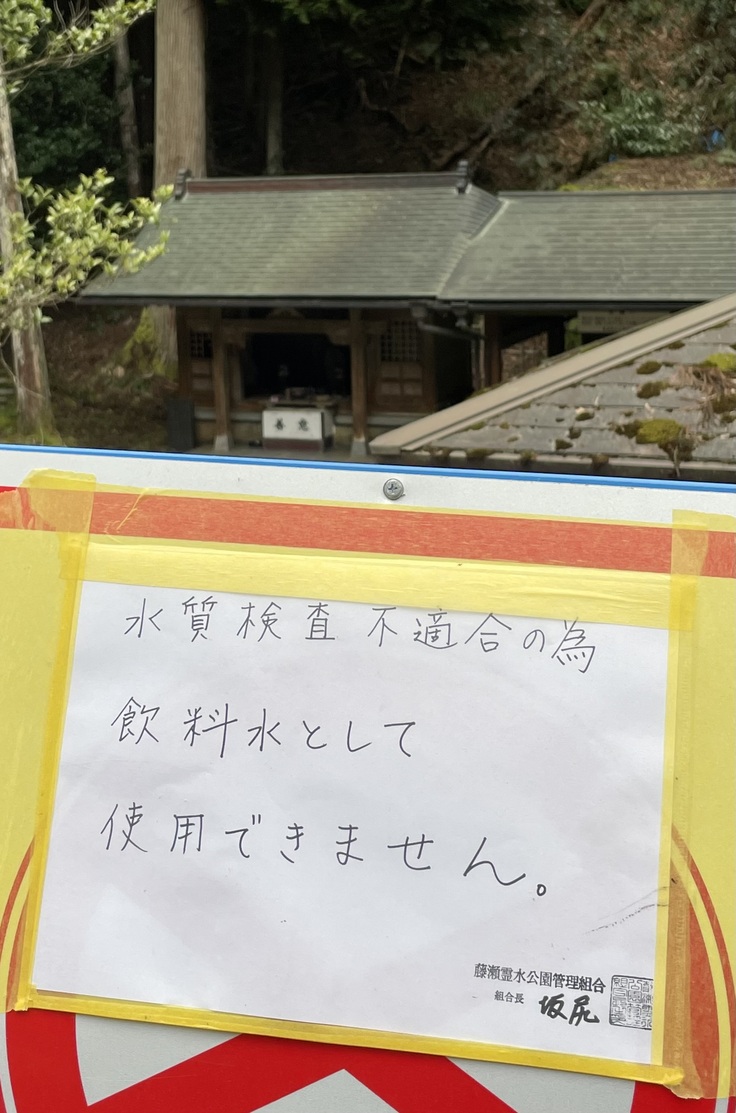 水質検査不適合の為
飲料水として
使用できません。
藤瀬霊水公園管理組合
組合長 坂尻